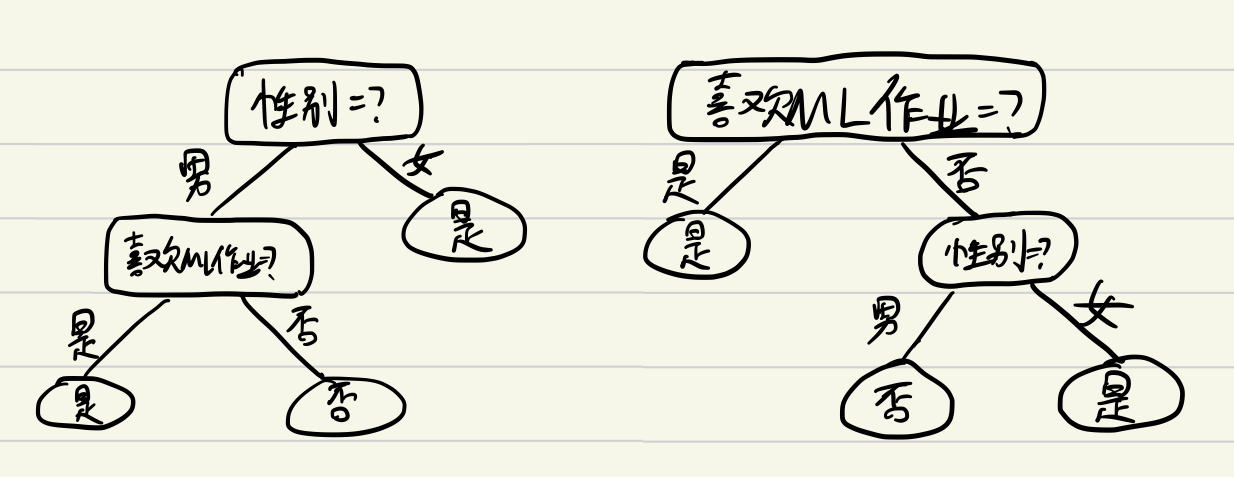 性别=?
男
女
喜欢ML作业=?
是
是
否
是
否
喜欢ML作业=?
是
否
是
性别=?
男
女
否
是